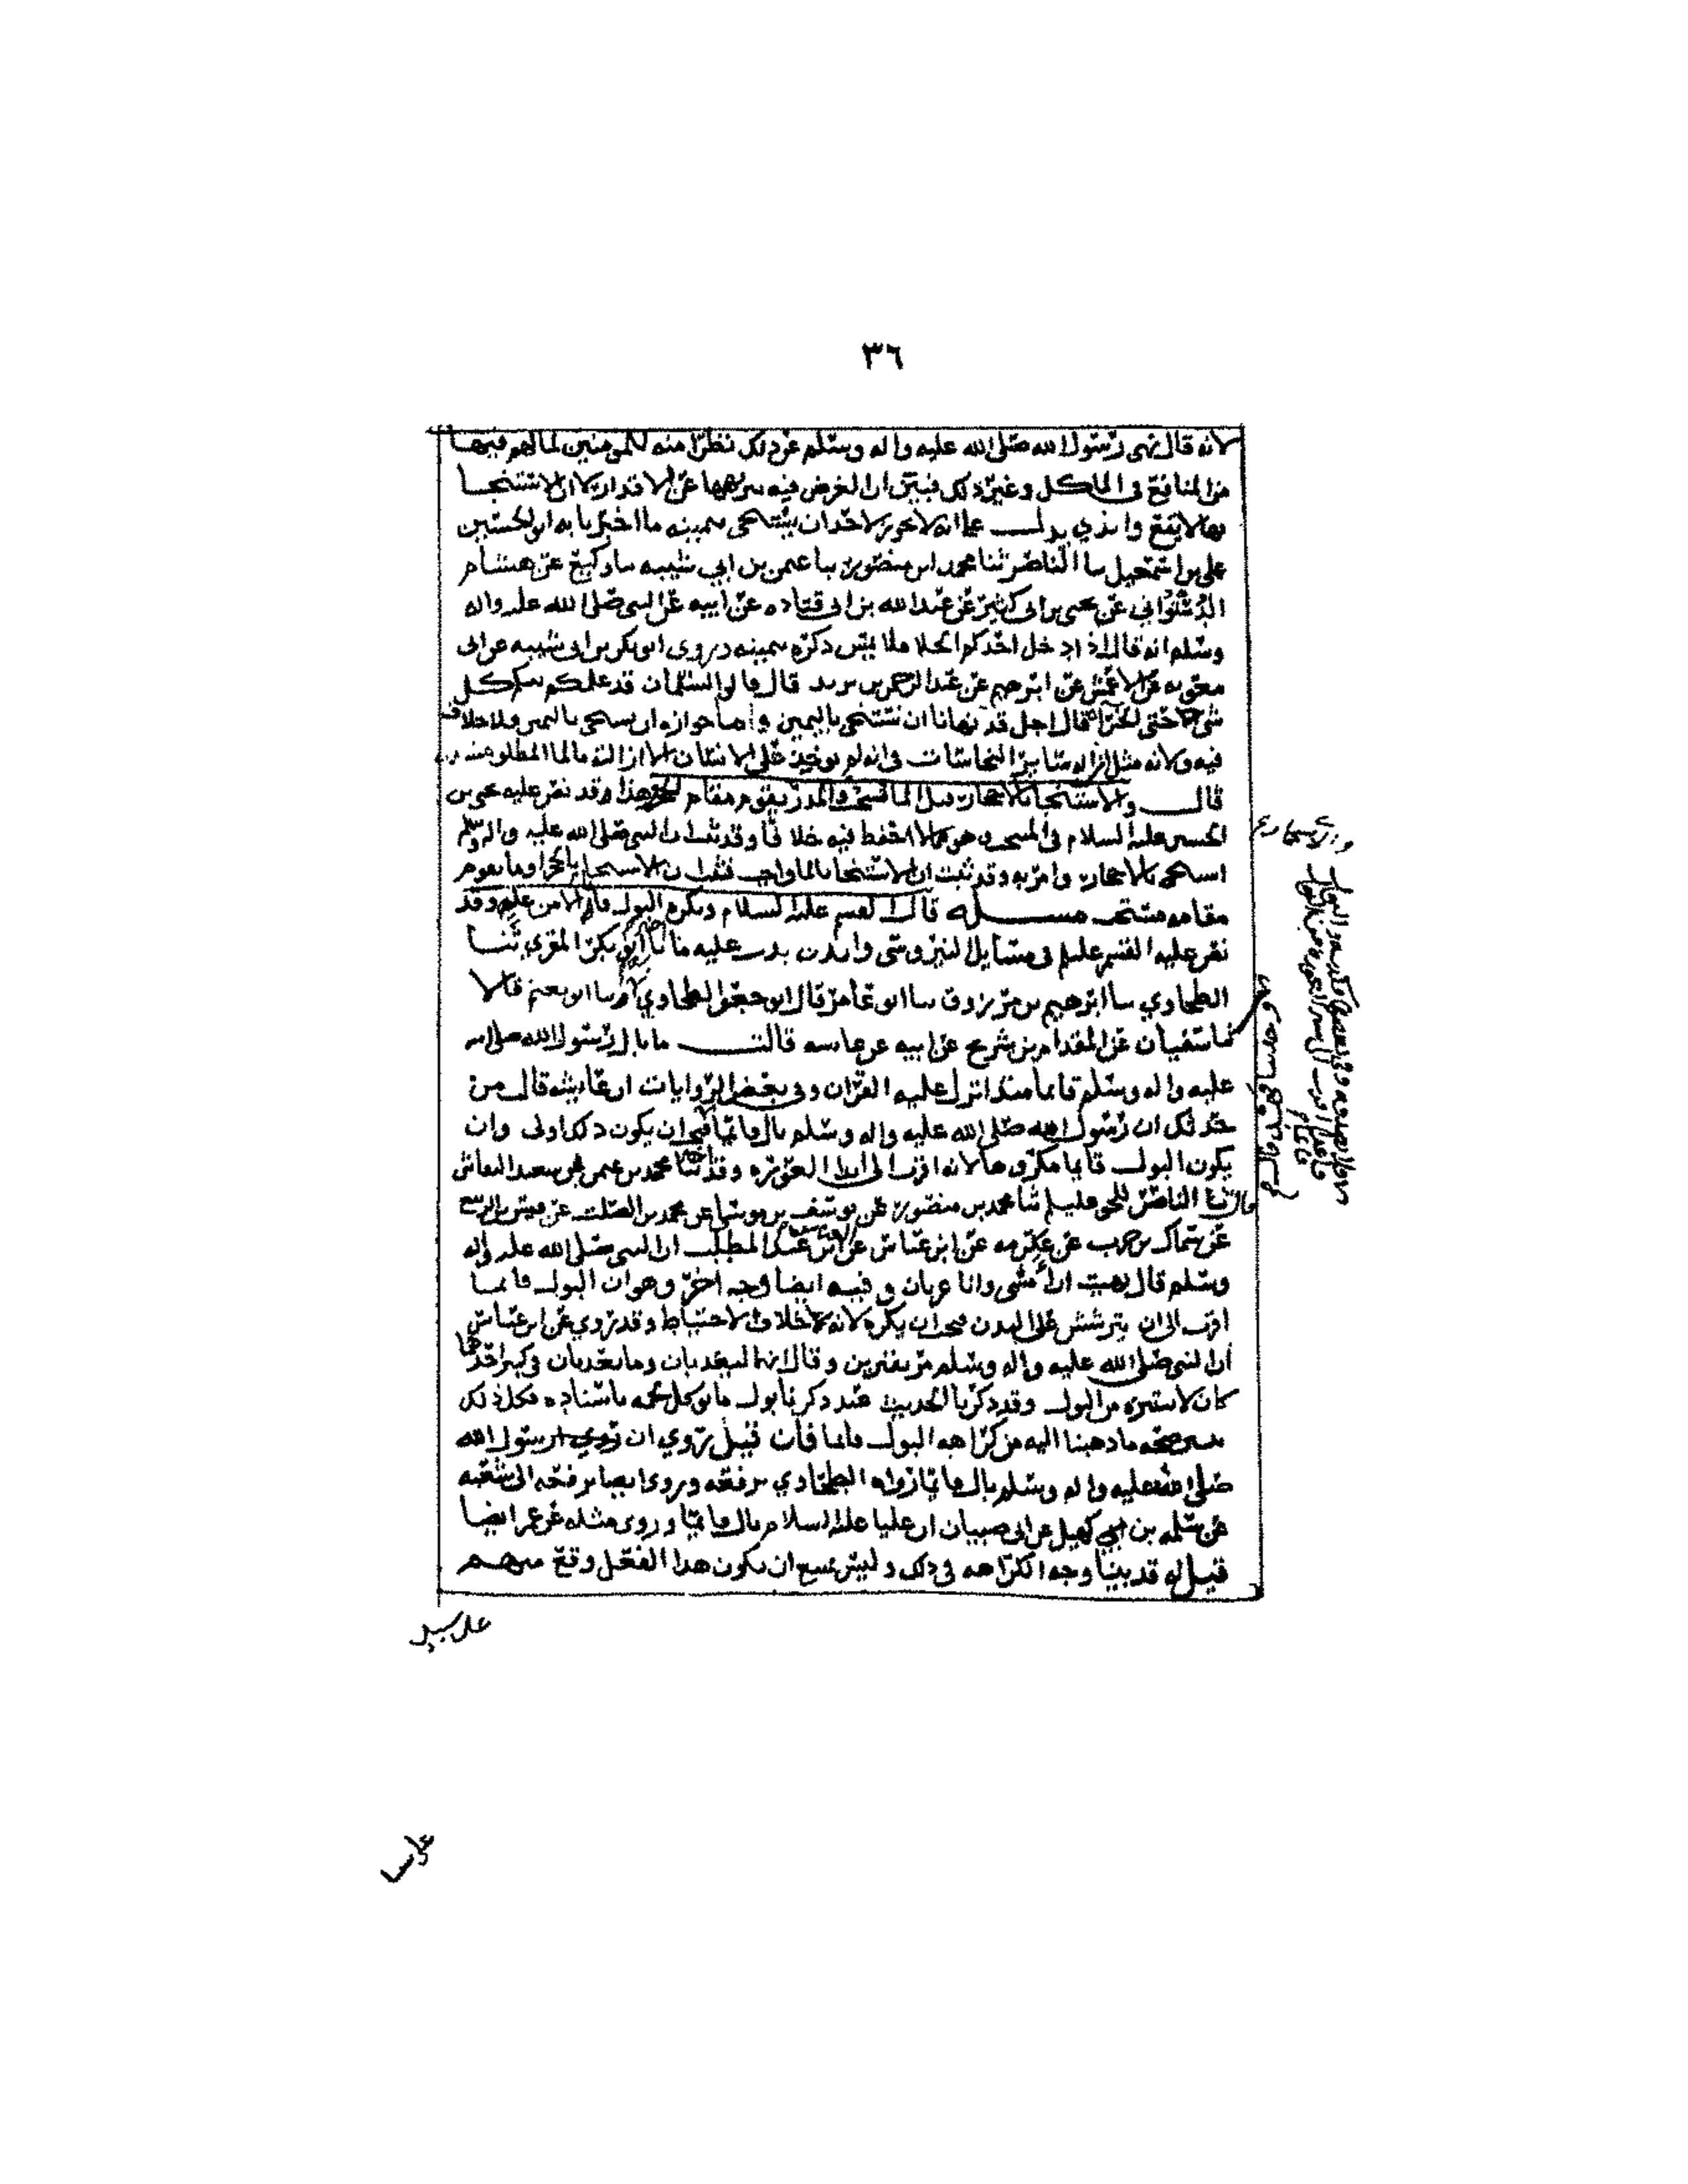 ٣٦
لانه قال نهى رسول الله صلى الله عليه واله وسلم عن ذلك نظرا منه للمومنين لما لهم فيها
من المنافع في الماكل وغير ذلك فبين ان الغرض فيه الاقدار لا ان الاستنجا
بها لا يقع والذي يدل على انه لا يجوز لاحد ان يستنجي بيمينه ما اخبرنا به ابو الحسين
علي بن اسمعيل نا الناصر ثنا محمد ابن منصور نا عثمن بن ابي شيبه نا وكيع عن هشام
الدستوائي عن يحيى بن ابي كثير عن عبدالله بن ابي قتاده عن ابيه عن النبي صلى الله عليه واله
وسلم انه قال اذا دخل احدكم الخلا فلا يمس ذكره بيمينه وروى ابو بكر بن ابي شيبه عن ابي
معويه عن الاعمش عن ابرهيم عن عبد الرحمن بن يزيد قال قالوا لسلمان قد علمكم نبيكم كل
شي حتى الخراة قال اجل قد نهانا ان نستنجي باليمين واما جوازه ان يستنجي باليمين فلا خلاف
فيه ولانه مثل ازاله سائر النجاسات في انه لم يوخذ على الانسان الا ازالته بالما المطلوب منه
قال والاستنجا بالاحجار قبل الما مستحب والمدر يقوم مقام الحجر هذا وقد نص عليه يحيى بن
الحسين عليه السلام في المنتخب وهو مما لا احفظ فيه خلافا وقد ثبت ان النبي صلى الله عليه واله وسلم
استنجى بالاحجار وامر به وقد ثبت ان الاستنجا بالما واجب فثبت ان الاستنجا بالحجر او ما يقوم
مقامه مستحب مسله قال القسم عليه السلام ويكره البول قائما الا من عله وقد
نص عليه القسم عليلم في مسايل النيروسي والذي يدل عليه ما نا ابو بكر المقري ثنا
الطحاوي نا ابرهيم بن مرزوق نا ابو عامر قال ابو جعفر الطحاوي و نا ابو نعيم قالا
نا سفيان عن المقدام بن شريح عن ابيه عن عايشه قالت ما بال رسول الله صلى الله
عليه واله وسلم قايما منذ انزل عليه القران وفي بعض الروايات ان عايشه قالت من
حدثك ان رسول الله صلى الله عليه واله وسلم بال قائما فيجب ان يكون ذلك اولى وان
يكون البول قايما مكروها لانه اقرب الى ابدا العوره وقد ثنا محمد بن عمر بن سعيد النقاش
قال نا الناصر للحق عليلم ثنا محمد بن منصور عن يوسف بن موسى عن محمد بن الصلت عن قيس بن الربيع
عن سماك بن حرب عن عكرمه عن ابن عباس عن العباس بن عبد المطلب ان النبي صلى الله عليه واله
وسلم قال نهيت ان امشي وانا عريان وفيه ايضا وجه اخر وهو ان البول قائما
اقرب الى ان يترشش على البدن فيجب ان يكره لانه خلاف الاحتياط وقد روي عن ابن عباس
ان النبي صلى الله عليه واله وسلم مر بقبرين وقال انهما ليعذبان وما يعذبان في كبير احدهما
كان لا يستنزه من البول وقد ذكرنا الحديث عند ذكرنا بول ما يوكل لحمه باسناده فكل ذلك
يبين صحه ما ذهبنا اليه من كراهه البول قائما فان قيل روي ان رسول الله
صلى الله عليه واله وسلم بال قائما رواه الطحاوي يرفعه وروى ايضا يرفعه الى شعبه
عن سلمه بن كهيل عن ابي ظبيان ان عليا عليه السلام بال قائما وروى مثله عن عمر ايضا
قيل له قد بينا وجه الكراهه في ذلك وليس يمتنع ان يكون هذا الفعل وقع منهم
على سبيل